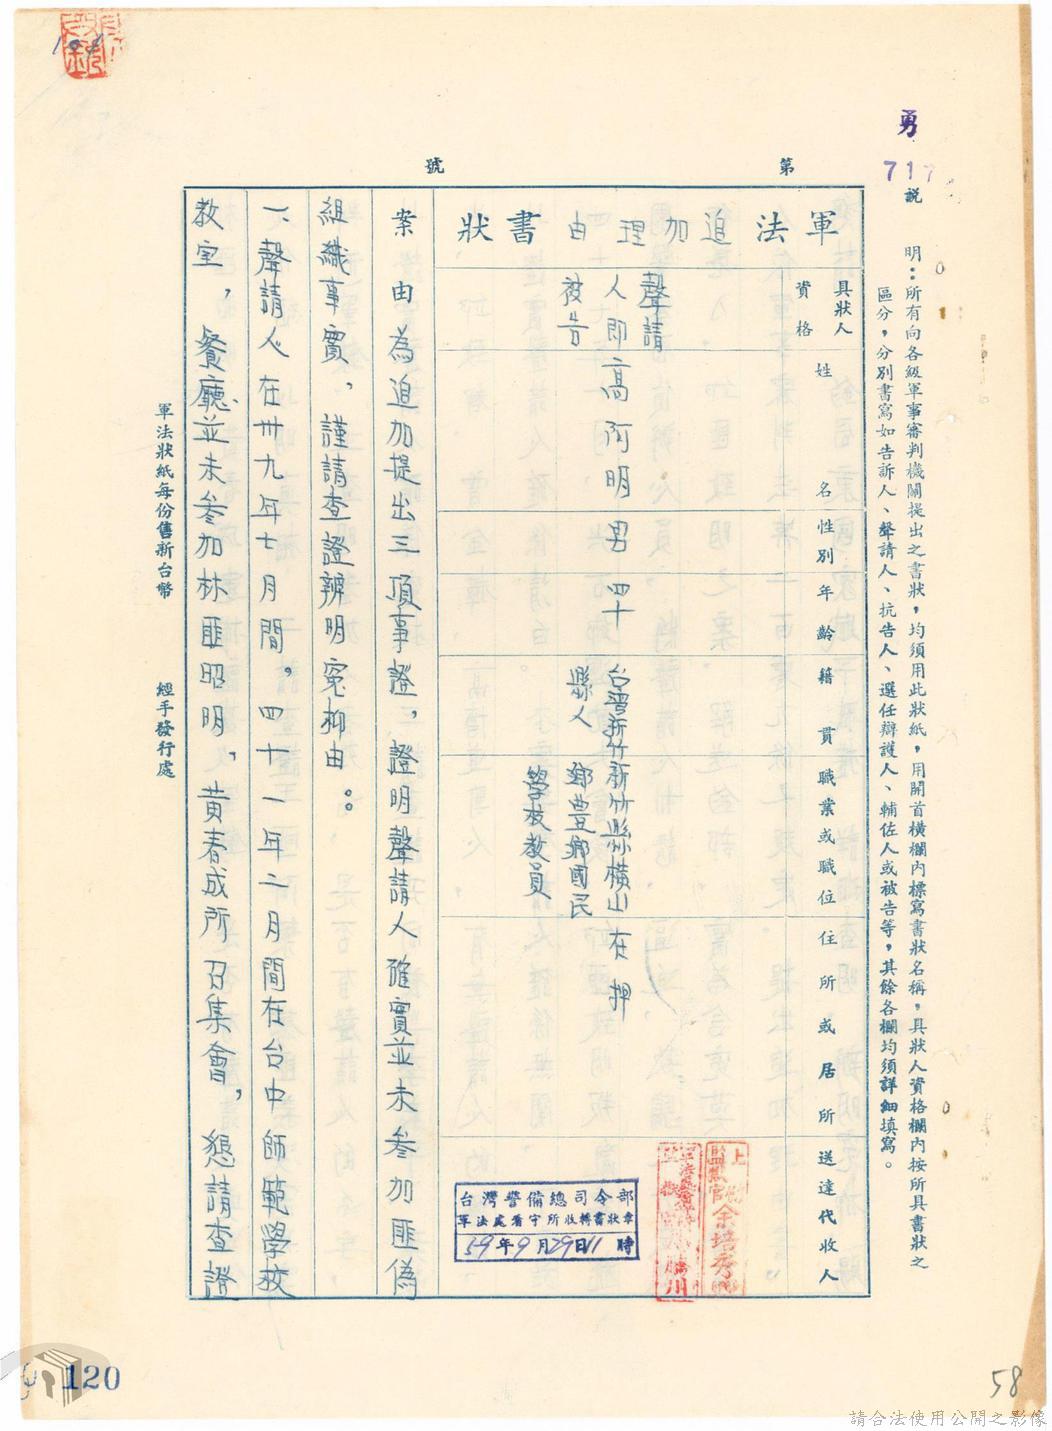 勇
717
第　號
說明：所有向各級軍事審判機關提出之書狀，均須用此狀紙，用開首橫欄內標寫書狀名稱，具狀人資格欄內按所具書狀之
區分，分別書寫如告訴人、聲請人、抗告人、選任辯護人、輔佐人或被告等，其餘各欄均須詳細填寫。
軍法追加理由書狀
具狀人
資格
姓名
性別
年齡
籍貫
職業或職位
住所或居所
送達代收人
聲請
人即
被告
高阿明
男
四十
台灣新竹
縣人
新竹縣橫山
鄉豊鄉國民
學校教員
在押
台灣警備總司令部
軍法處看守所收轉書狀章
59年9月29日11時
案由為追加提出三項事證，證明聲請人確實並未叁加匪偽
組織事實，謹請查證辨明冤抑由：
一、聲請人在卅九年七月間，四十一年二月間在台中師範學校
教室，餐廳並未叁加林匪昭明，黃春成所召集會，懇請查證
軍法狀紙每份售新台幣
經手發行處
120
58
請合法使用公開之影像